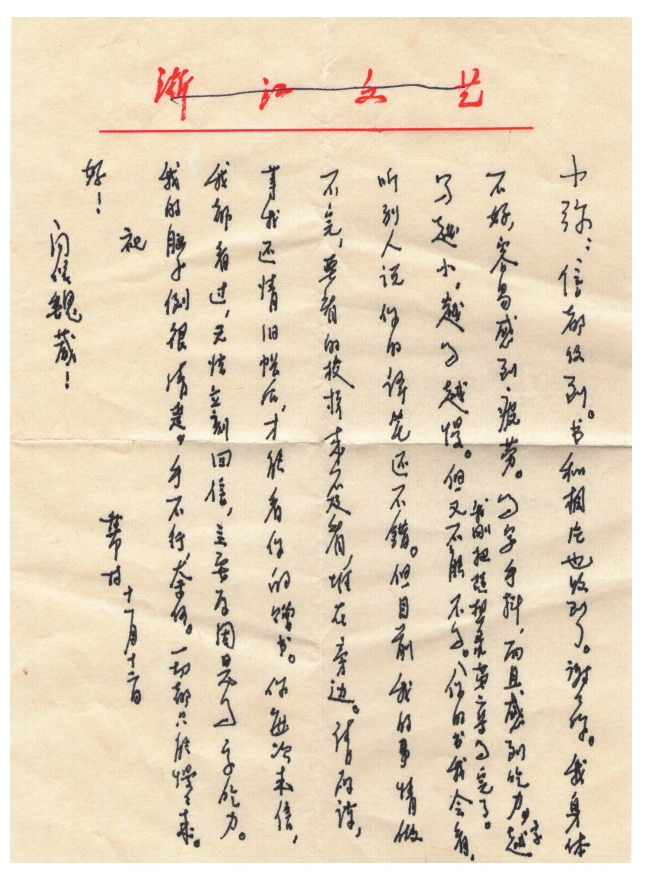 浙江文艺
小弥：信都收到。书和相片也收到了。谢谢你。我身体
不好，容易感到疲劳。写字手抖，而且感到吃力，字越
写越小，越写越慢。但又不能不写。（你的书我会看，
我刚把随想录第章写完了。
听别人说你的译笔还不错。但目前我的事情做
不完，要看的校样来不及看，堆在旁边。请原谅，
等我还清旧帐后，才能看你的赠书。你每次来信，
我都看过，无法立刻回信，主要原因是写字吃力。
我的脑子倒很清楚，手不行，奈何。一切都只能慢慢来。
祝
好！
芾甘 十一月十二日
问候魏葳！